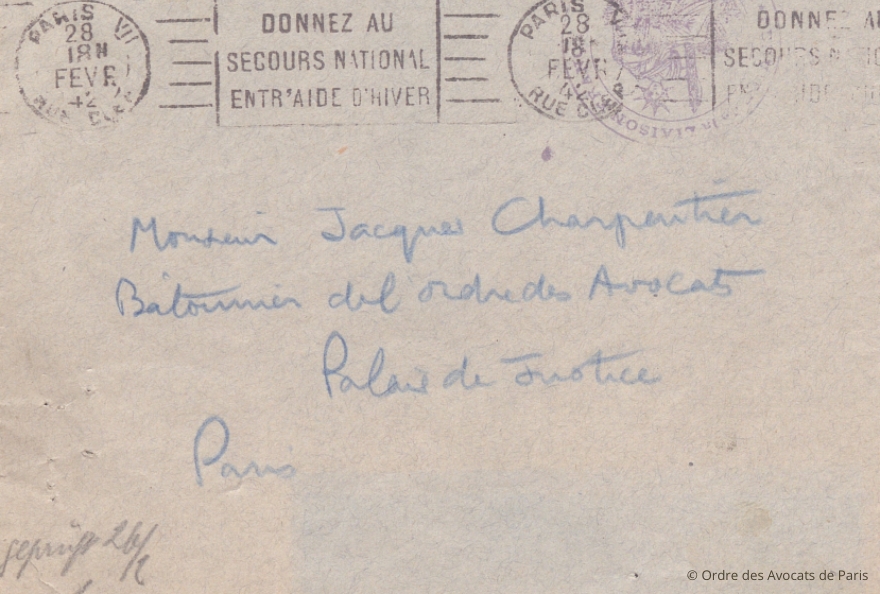 PARIS VII
28
18H
FEVR
42
RUE CLER
DONNEZ AU
SECOURS NATIONAL
ENTR'AIDE D'HIVER
PARIS
28
18H
FEVR
42
RUE C
LIAISON
DONNEZ AU
SECOURS N
Monsieur Jacques Charpentier
Bâtonnier de l'ordre des Avocats
Palais de Justice
Paris
geprüft 26/2
© Ordre des Avocats de Paris